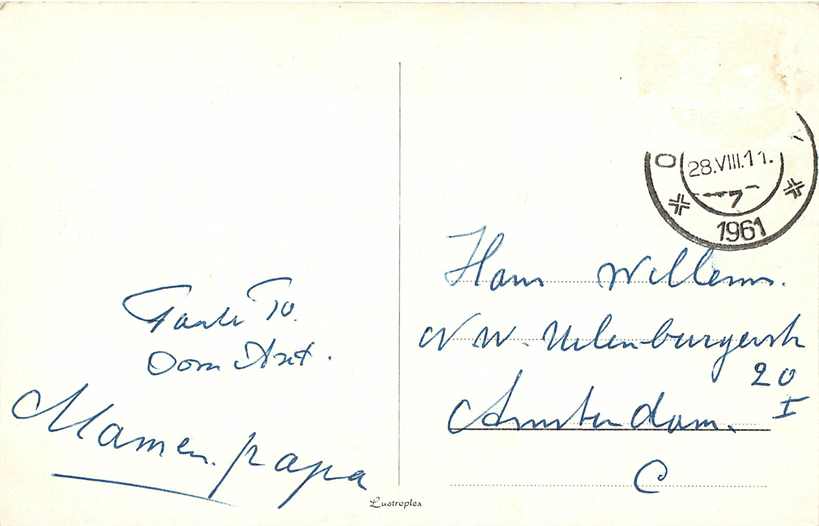 Tante To.
Oom Axt.
Mam en papa
Lustroplex
28.VIII.11.
7
1961
Hans Willems.
NW. Uilenburgerstr
20
I
Amsterdam.
C